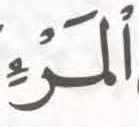 ٱلْمَرْءِ